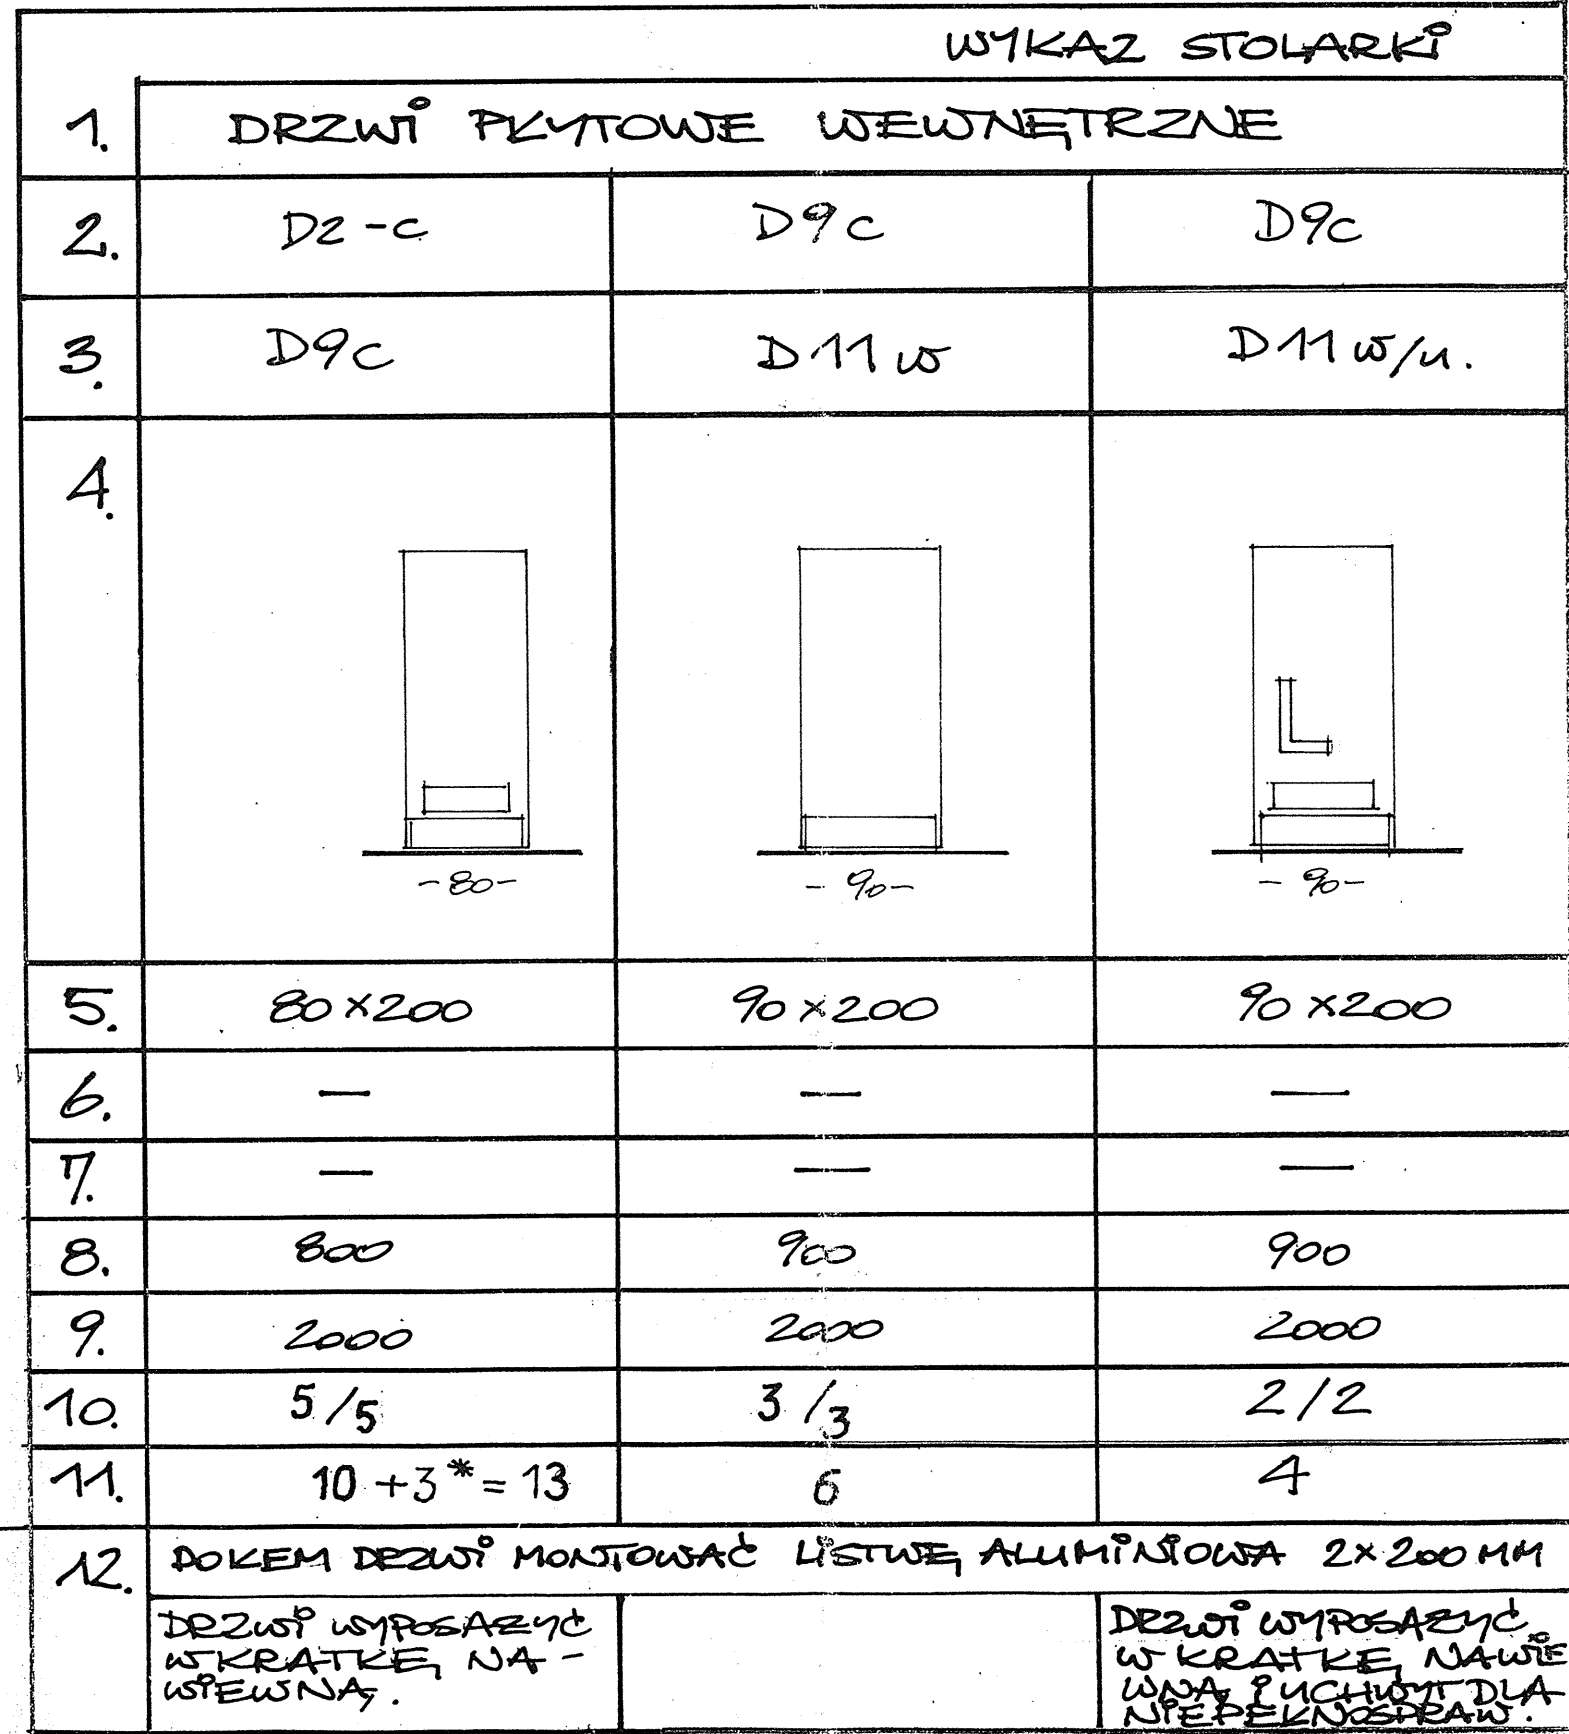 WYKAZ STOLARKI
1. DRZWI PŁYTOWE WEWNĘTRZNE
2. D2-c D9c D9c
3. D9c D11w D11w/u.
4.
-80- -90- -90-
5. 80x200 90x200 90x200
6. — — —
7. — — —
8. 800 900 900
9. 2000 2000 2000
10. 5/5 3/3 2/2
11. 10+3*=13 6 4
12. DOŁEM DRZWI MONTOWAĆ LISTWĘ ALUMINIOWA 2x200MM
DRZWI WYPOSAZYĆ
W KRATKĘ NA-
WIEWNĄ.
DRZWI WYPOSAZYĆ
W KRATKĘ NAWIE
WNĄ I UCHWYT DLA
NIEPEŁNOSPRAW.